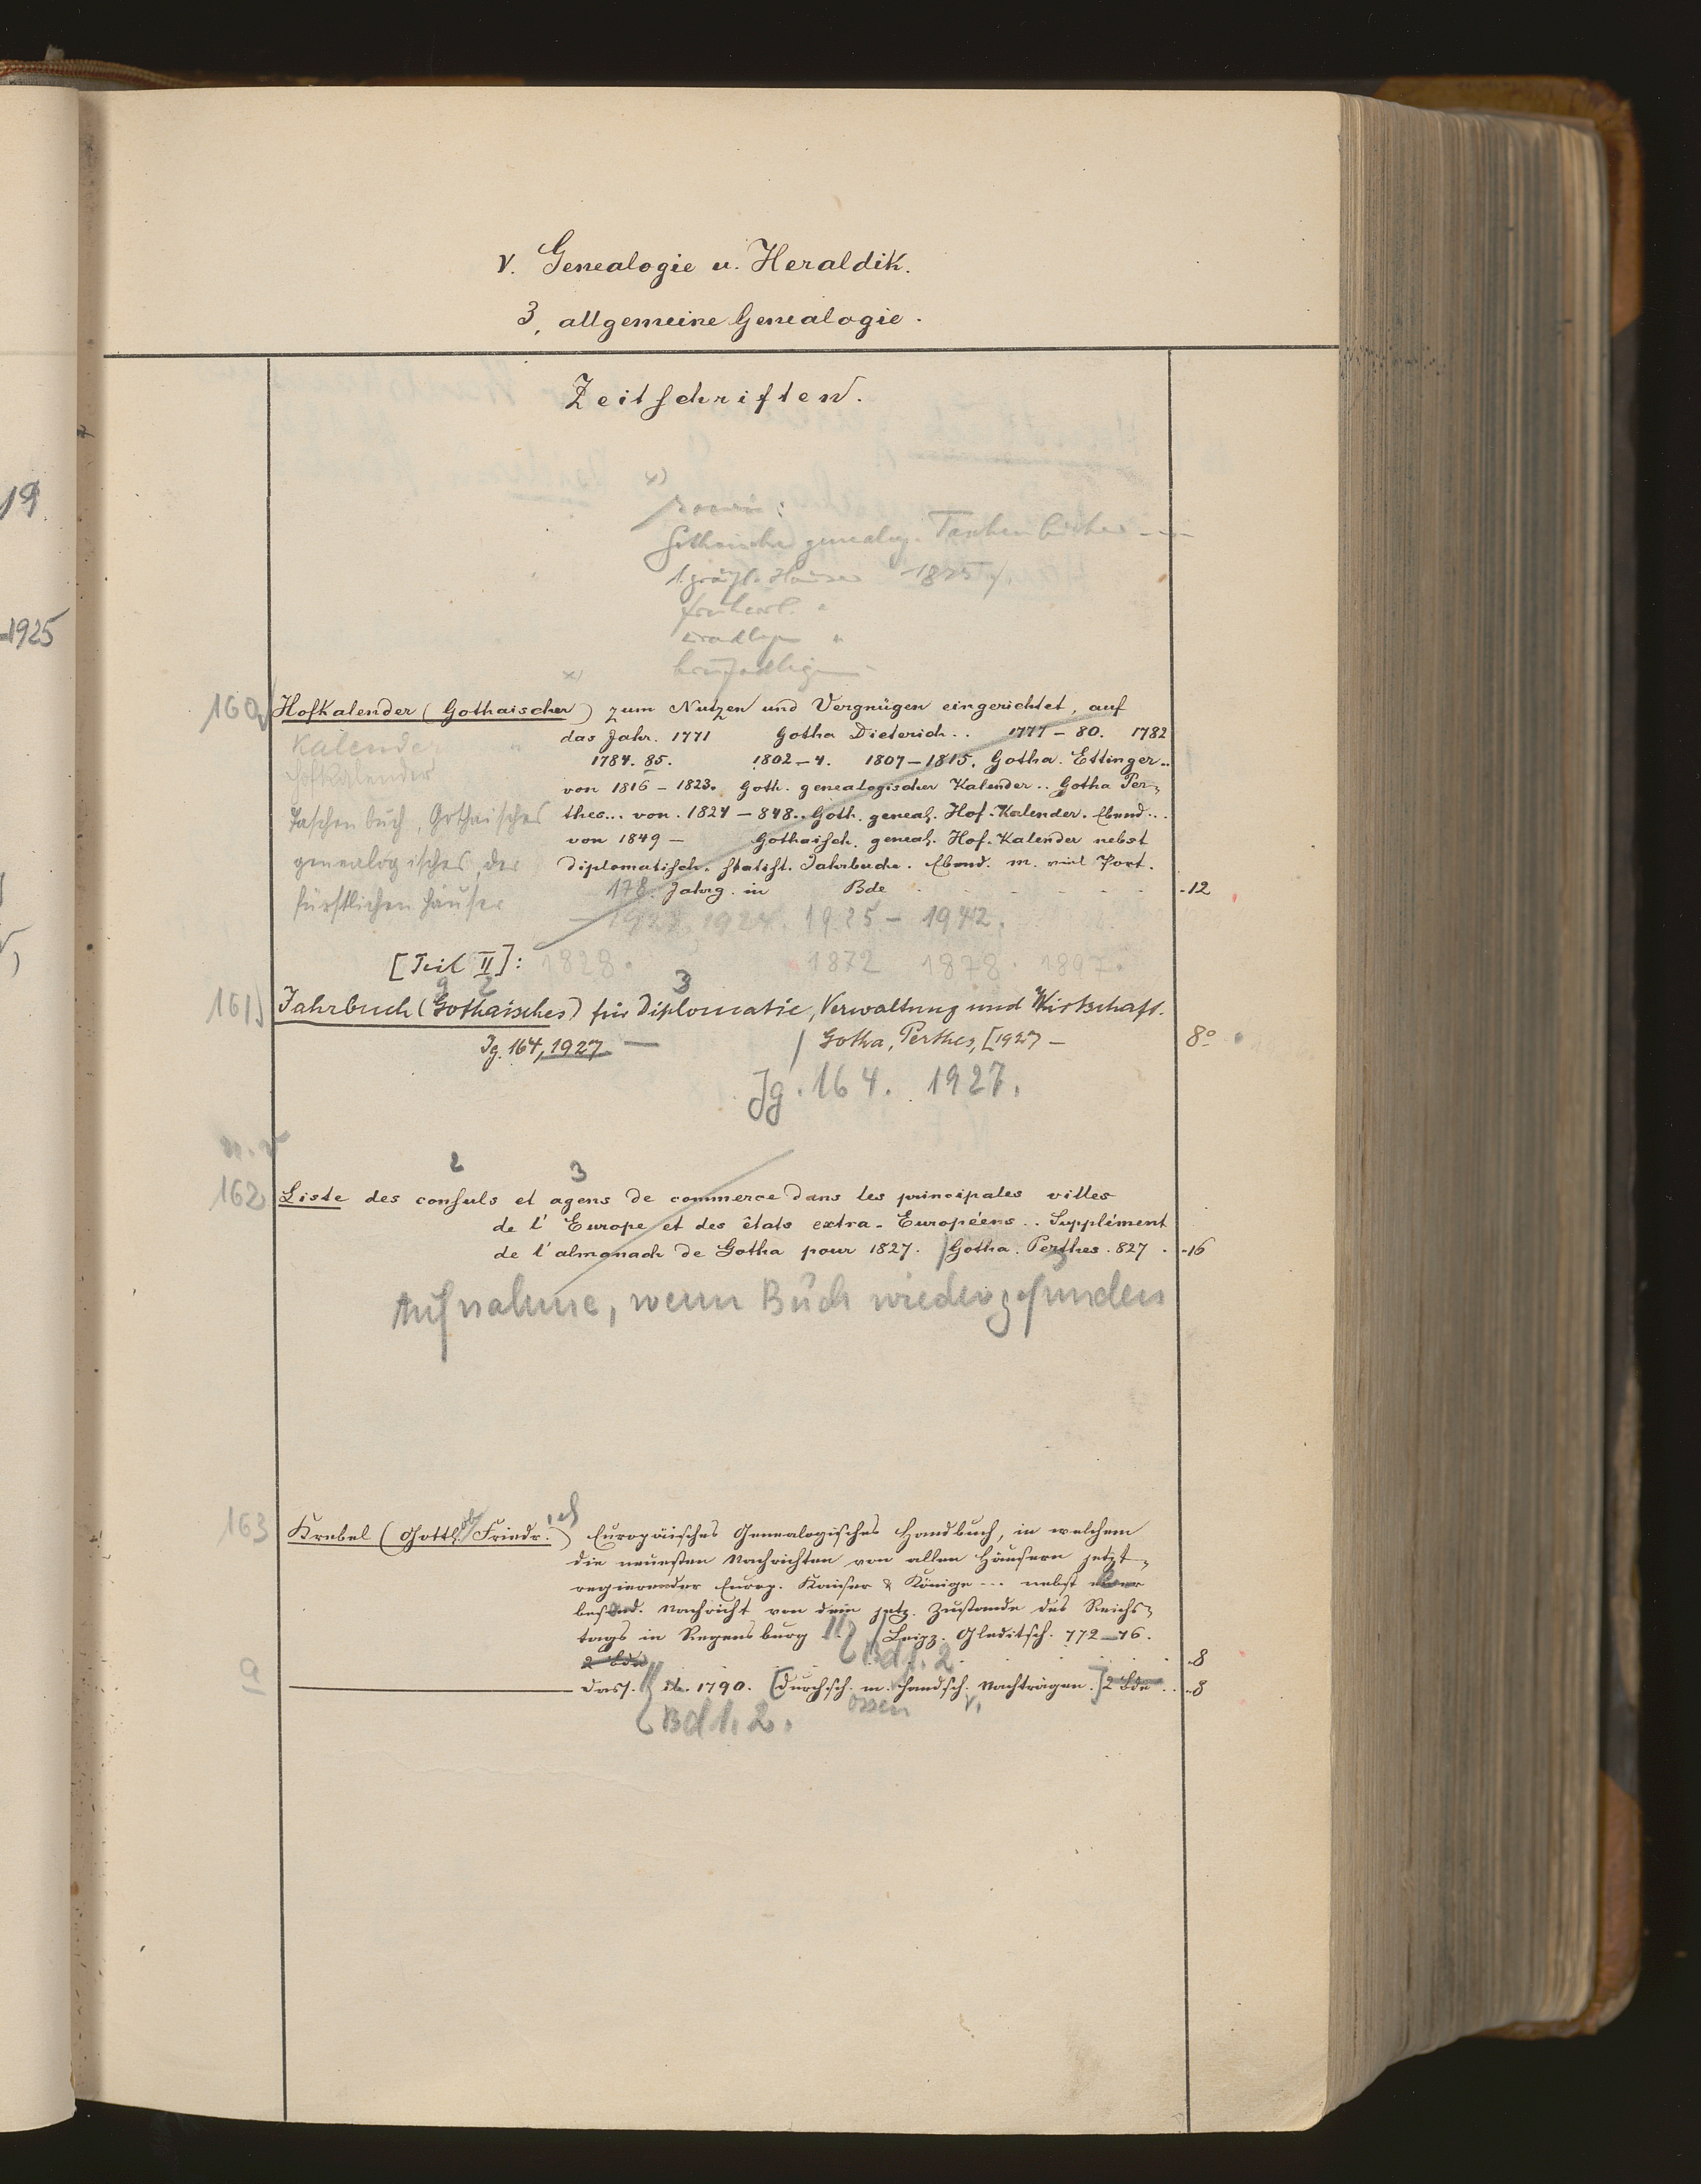 19
1925
V. Genealogie u. Heraldik.
3, allgemeine Genealogie.
Zeitschriften.
x)
sowie:
Gothaische genealog. Taschenbücher
1. gräfl. Häuser 1825
freiherl. "
uradlige "
briefadlige
x)
160) Hofkalender (Gothaischer) zum Nutzen und Vergnügen eingerichtet, auf
das Jahr. 1771 Gotha Dieterich.. 1777-80. 1782
1784. 85. 1802-4. 1807-1815. Gotha. Ettinger..
von 1816-1823. Goth. genealogischer Kalender.. Gotha Per-
thes... von. 1824-848.. Goth. geneal. Hof-Kalender. Ebend...
von 1849- Gothaisch. geneal. Hof-Kalender nebst
diplomatisch. statist. Jahrbuche. Ebend. m. viel Port.
178. Jahrg. in Bde -12
Kalender
Hofkalender
Taschenbuch, Gothaisches
genealogisches, der
fürstlichen Häuser
1923, 1924. 1925-1942.
[Teil II]: 1828. 1872 1878. 1897.
161) Jahrbuch (Gothaisches) für Diplomatie, Verwaltung und Wirtschaft.
Jg. 164, 1927 — / Gotha, Perthes, [1927- 8°
Jg. 164. 1927.
2 3
162) Liste des consuls et agens de commerce dans les principales villes
de l'Europe et des états extra-Européens.. Supplément
de l'almanach de Gotha pour 1827. / Gotha. Perthes. 827. -16
Aufnahme, wenn Buch wiedergefunden
163 Krebel (Gottl.ob Friedr.ich) Europäisches Genealogisches Handbuch, in welchem
die neuesten Nachrichten von allen Häusern jetzt-
regierender Europ. Kaiser & Könige... nebst einer
besond. Nachricht von dem jetz. Zustande des Reichs-
tags in Regensburg / Leipz. Gleditsch. 772-76.
2 Bde Bd 1. 2 -8
a — dass. ib. 1790. [durchsch. m. handsch. Nachträgen.] 2 Bde.. -8
Bd 1. 2. ossen v.